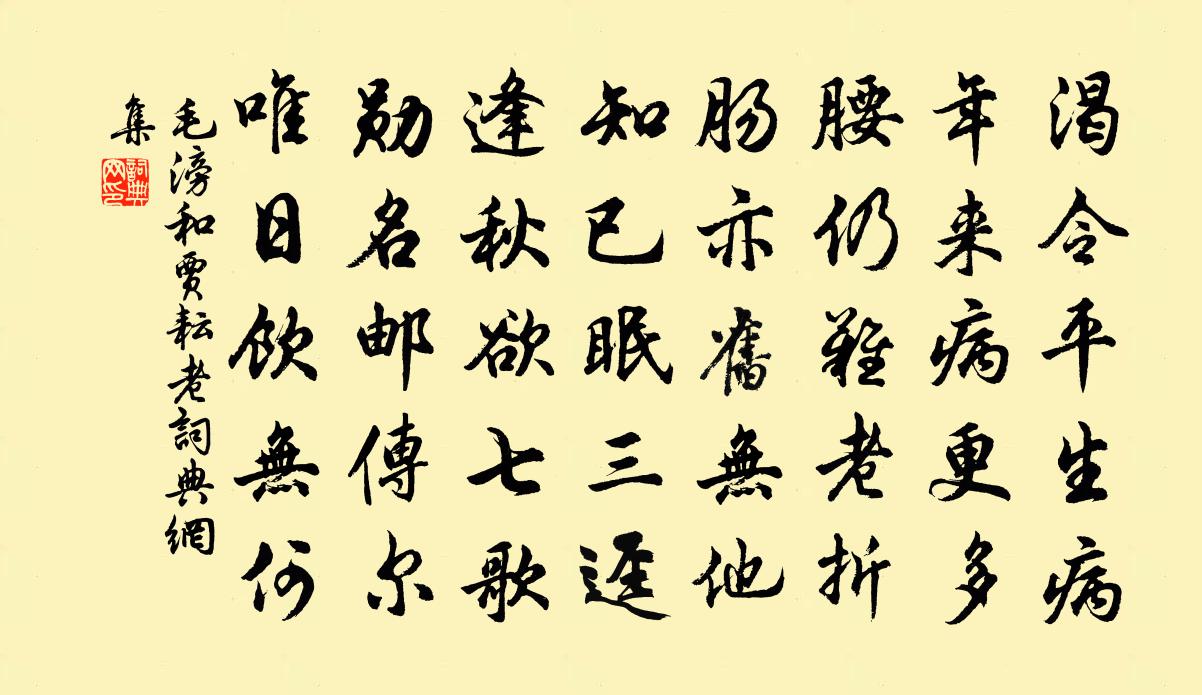 渴令平生病
年来病更多
腰仍難老折
肠亦舊無他
知已眠三逕
逢秋欲七歌
勋名邮傳尔
唯日飲無何
毛滂和賈耘老詞典網
集
詞典網印